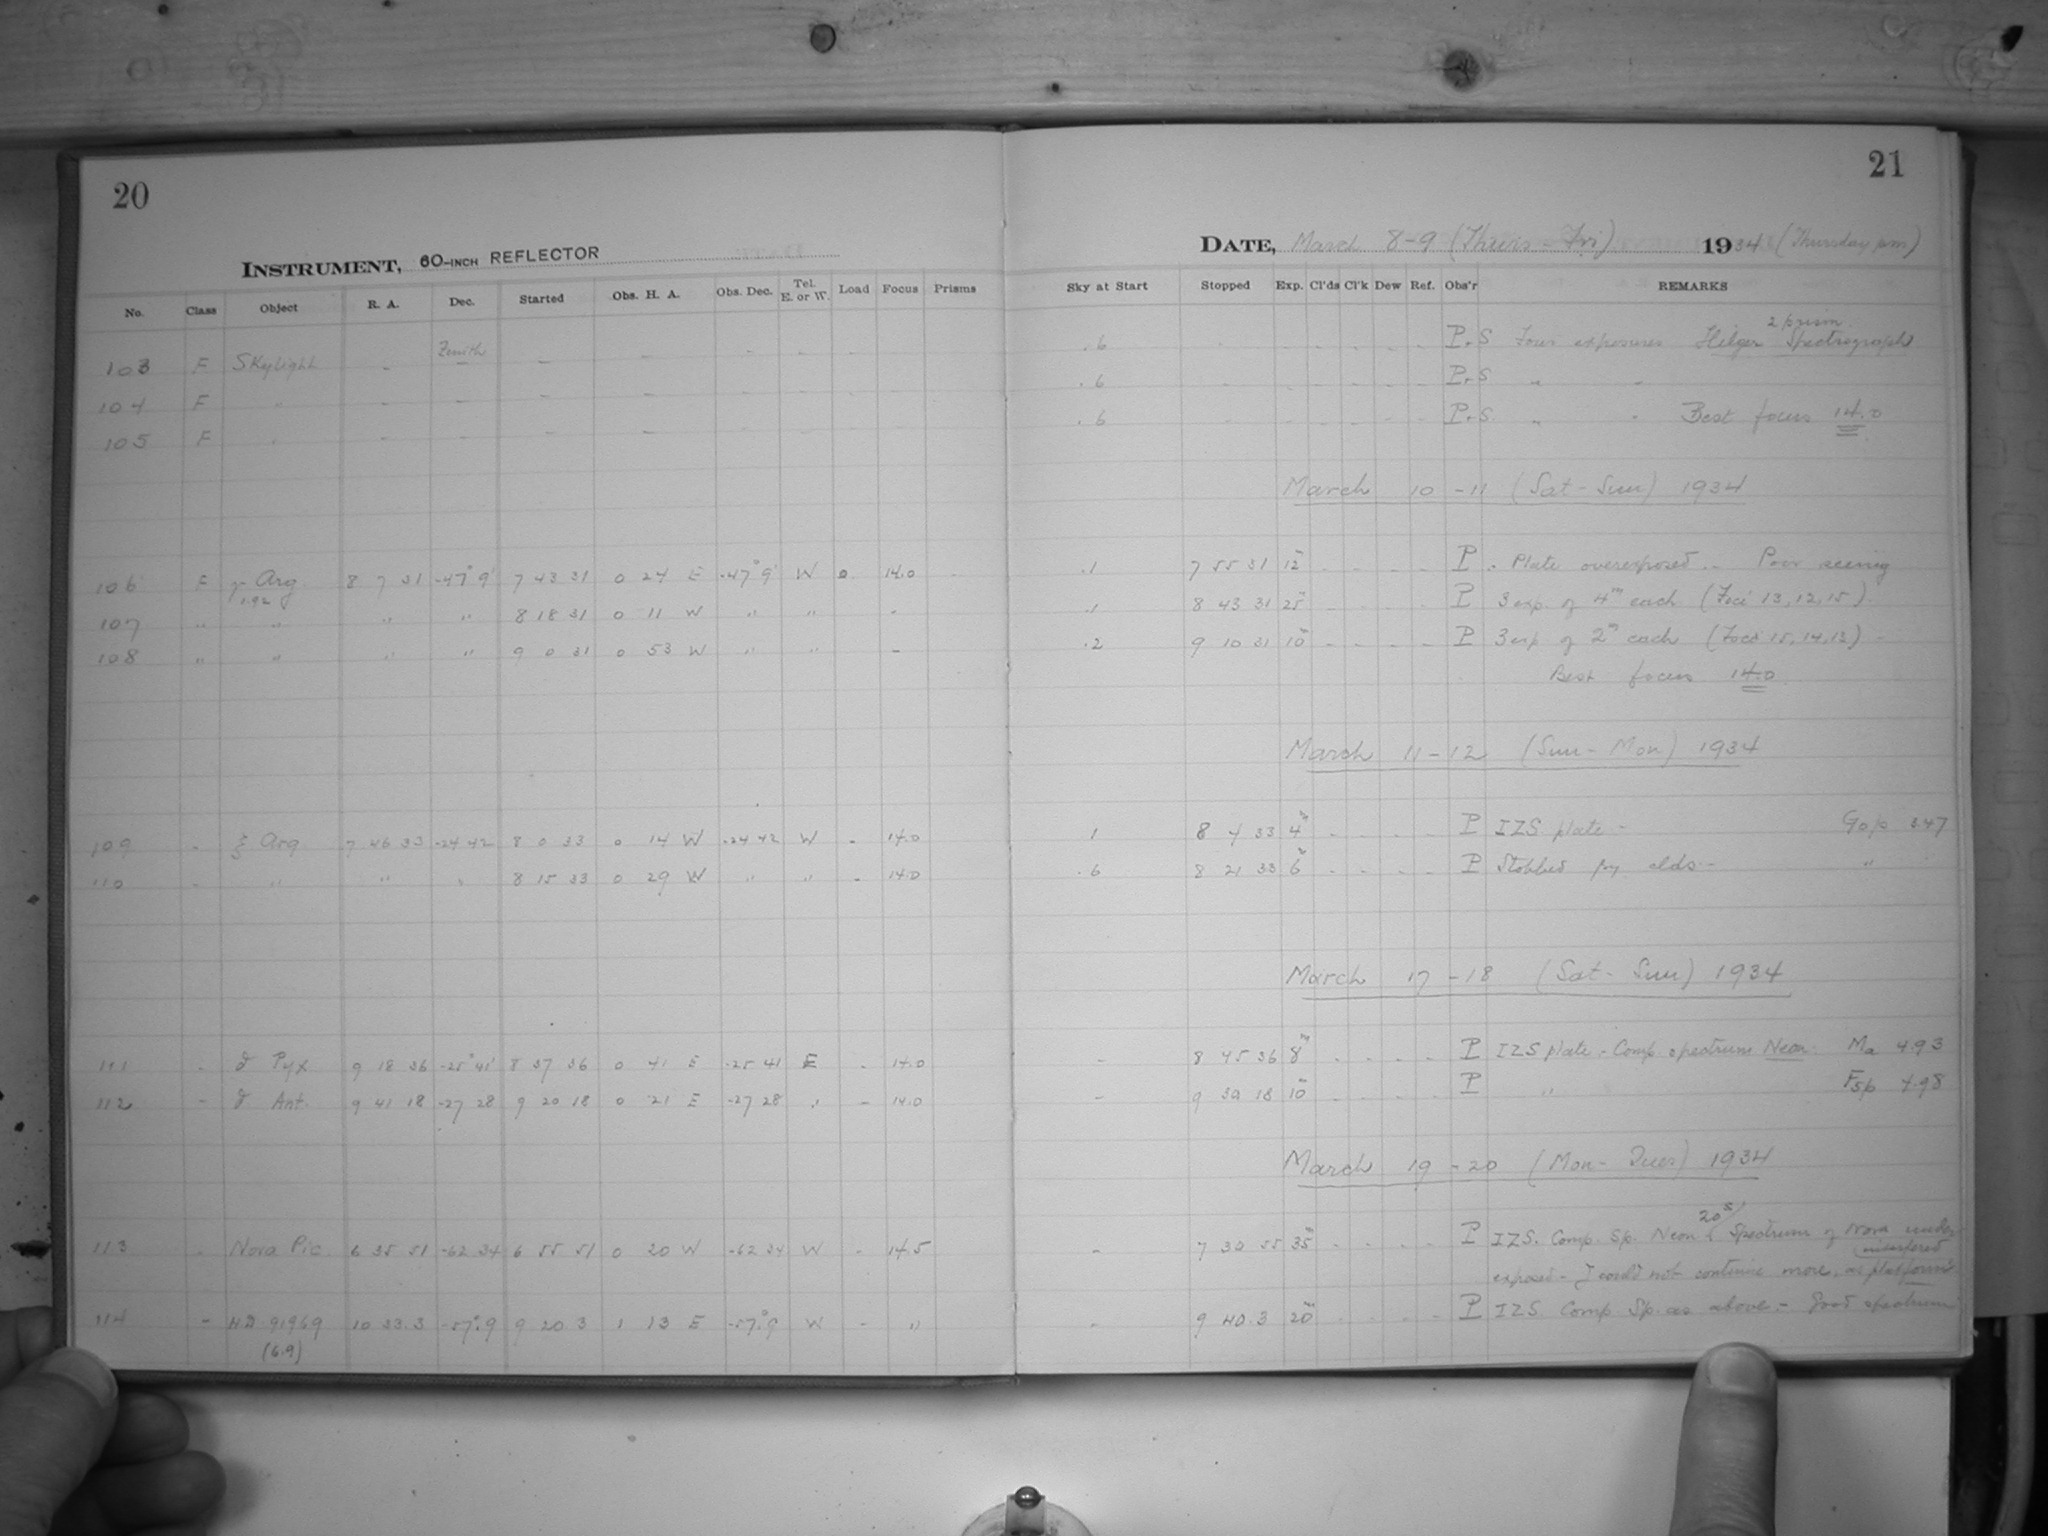 20
INSTRUMENT, 60-INCH REFLECTOR
No. Class Object R. A. Dec. Started Obs. H. A. Obs. Dec. Tel. E. or W. Load Focus Prisms
103 F Skylight - Zenith - - - - - -
104 F " - - - - - - - -
105 F " - - - - - - -
106 F γ Arg 8 7 31 -47° 9' 7 43 31 0 24 E -47° 9' W 0 14.0 -
1.92
107 " " " " 8 18 31 0 11 W " " -
108 " " " " 9 0 31 0 53 W " " -
109 - ξ Arg 7 46 33 -24 42 8 0 33 0 14 W -24 42 W - 14.0
110 - " " " 8 15 33 0 29 W " " - 14.0
111 - Pyx 9 18 36 -25° 41' 8 37 36 0 41 E -25 41 E - 14.0
112 - Ant. 9 41 18 -27 28 9 20 18 0 21 E -27 28 " - 14.0
113 - Nova Pic 6 35 51 -62 34 6 55 51 0 20 W -62 34 W - 14.5
114 - HD 91969 10 33.3 -57°.9 9 20.3 1 13 E -57°.9 W - "
(6.9)
21
DATE, March 8-9 (Thurs - Fri) 1934 (Thursday pm)
Sky at Start Stopped Exp. Cl'ds Cl'k Dew Ref. Obs'r REMARKS
2 prism
.6 - - - - - - P.S Four exposures Hilger Spectrograph
.6 - - - - - - P.S " "
.6 - - - - - - P.S. " " Best focus 14.0
March 10 -11 (Sat - Sun) 1934
.1 7 55 31 12m - - - - P - Plate overexposed -- Poor seeing
.1 8 43 31 25m - - - - P 3 exp. of 4m each (Foci 13, 12, 15)
.2 9 10 31 10m - - - - P 3 exp of 2m each (Foci 15, 14, 13) -
Best focus 14.0
March 11 - 12 (Sun - Mon) 1934
1 8 4 33 4m - - - - P IZS plate - G0p 3.47
.6 8 21 33 6m - - - - P Stobbed by clds - "
March 17 - 18 (Sat - Sun) 1934
- 8 45 36 8m - - - - P IZS plate - Comp. spectrum Neon Ma 4.93
- 9 30 18 10m - - - - P " F5p 4.98
March 19 - 20 (Mon - Tues) 1934
20s
- 7 30 55 35m - - - - P IZS. Comp. Sp. Neon Spectrum of Nova under
exposed - I could not continue more, as platform
- 9 40.3 20m - - - - P IZS. Comp Sp. as above - Good spectrum